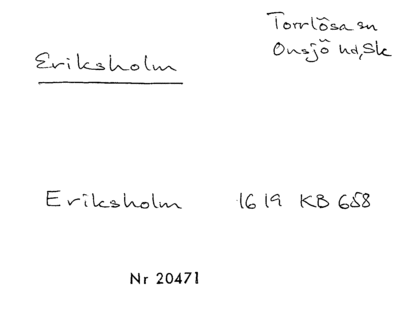 Torrlösa sn
Onsjö hd, Sk
Eriksholm
Eriksholm 1619 KB 658
Nr 20471